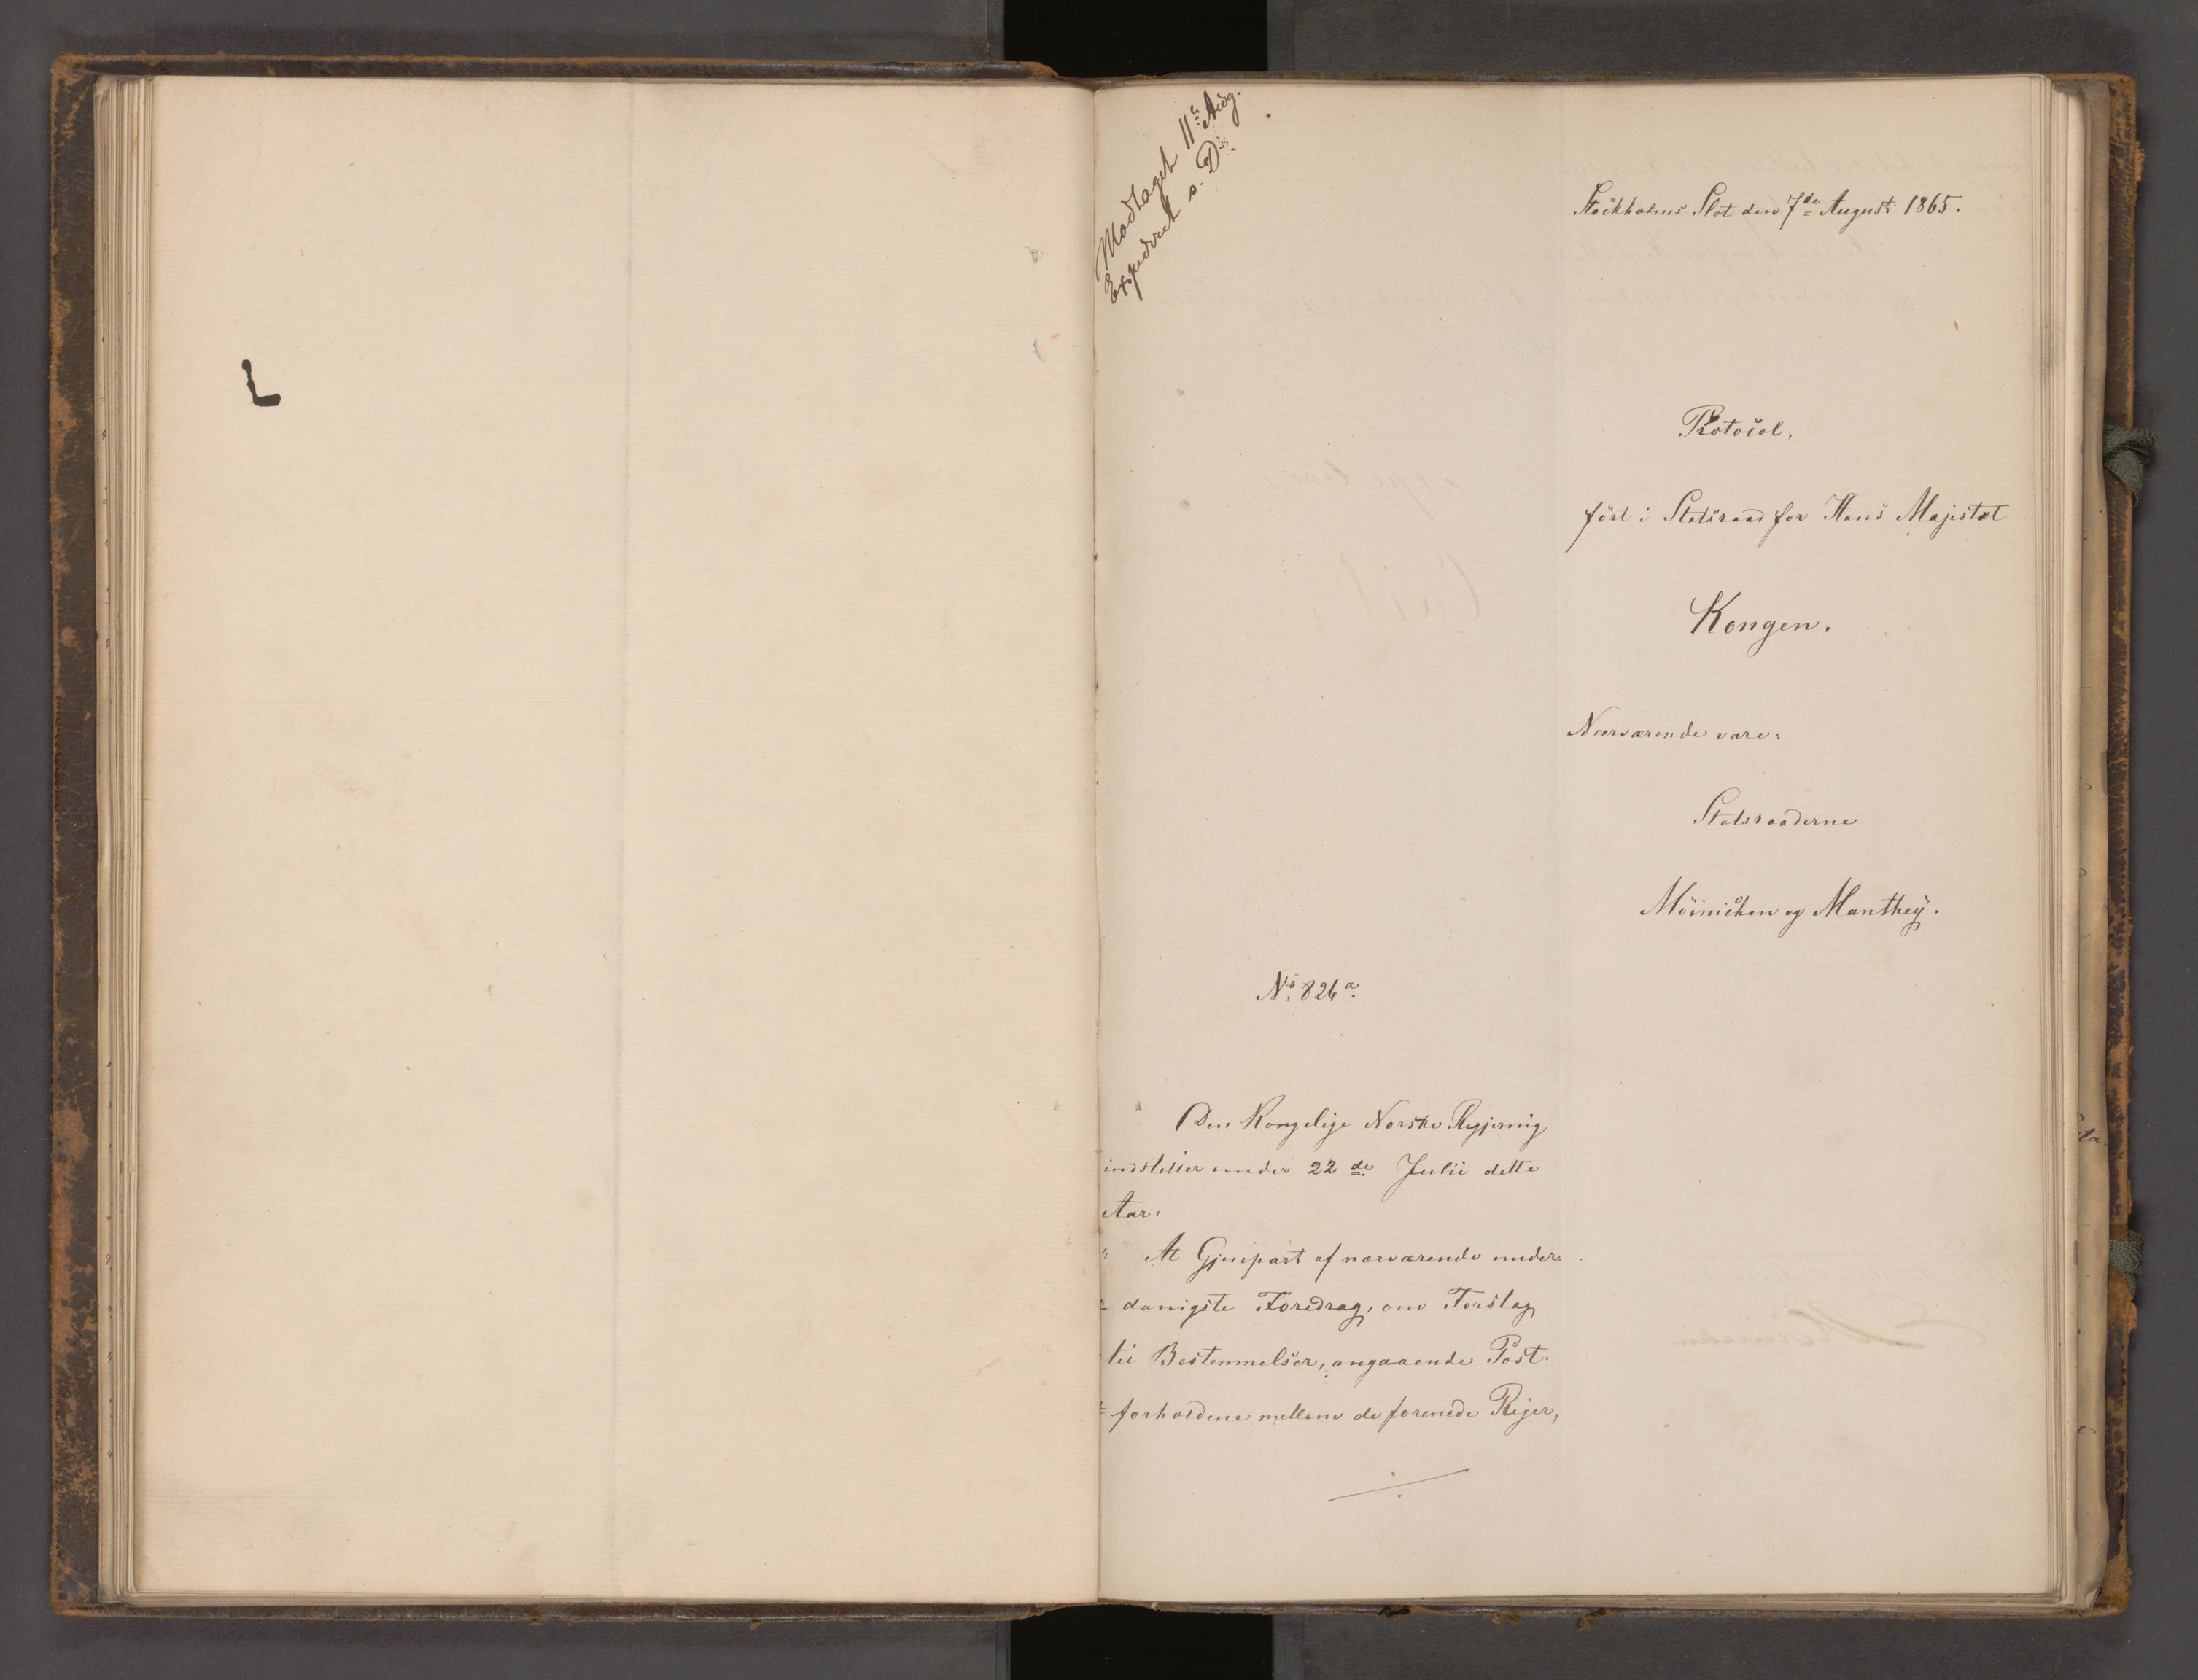 Modtaget 11te Aug.
Expederet s. D.
Stockholms Slot den 7de August 1865.
Protocol,
fört i Statsraad for Hans Majestæt
Kongen.
Nærværende vare:
Statsraaderne
Möinichen og Manthey.
No 826 a.
Den Kongelige Norske Regjering
indstiller under 22de Julii dette
Aar:
" At Gjenpart af nærværende under=
= danigste Foredrag, om Forslag
til Bestemmelser, angaaende Post=
= forholdene mellem de forenede Riger,